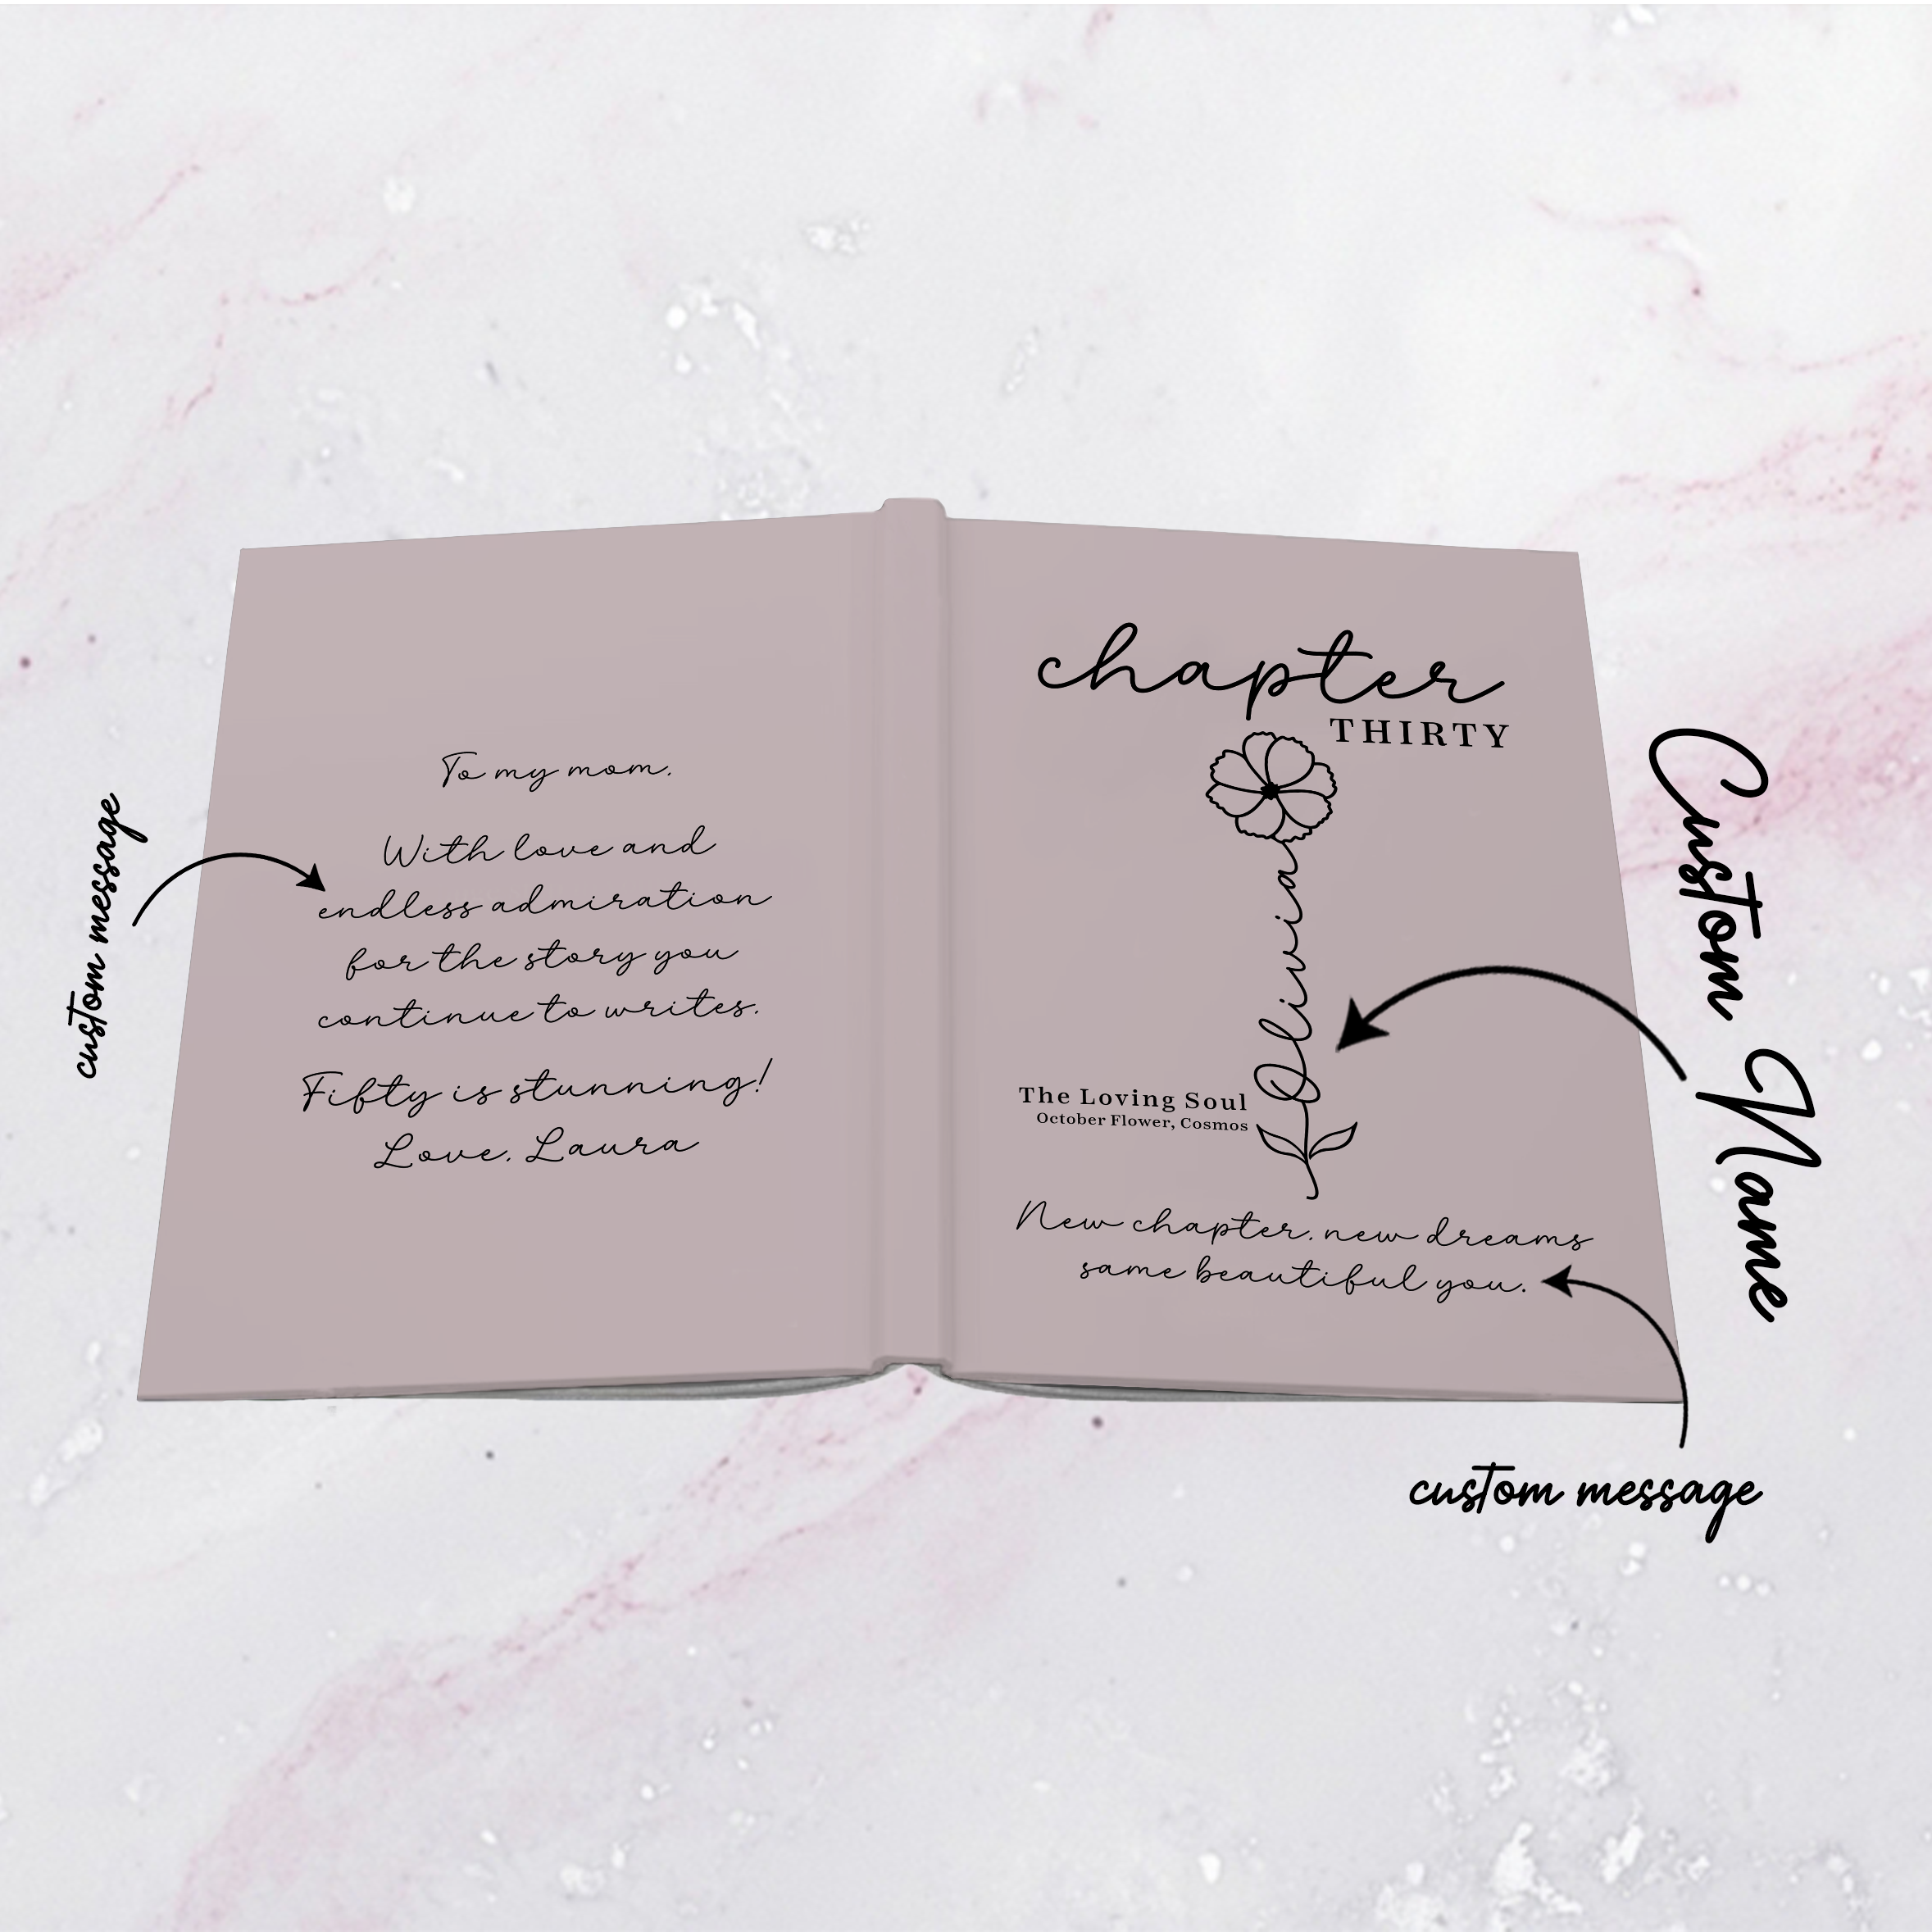 custom message
To my mom,
With love and
endless admiration
for the story you
continue to writes.
Fifty is stunning!
Love, Laura
chapter
THIRTY
Olivia
The Loving Soul
October Flower, Cosmos
New chapter, new dreams
same beautiful you.
Custom Name
custom message